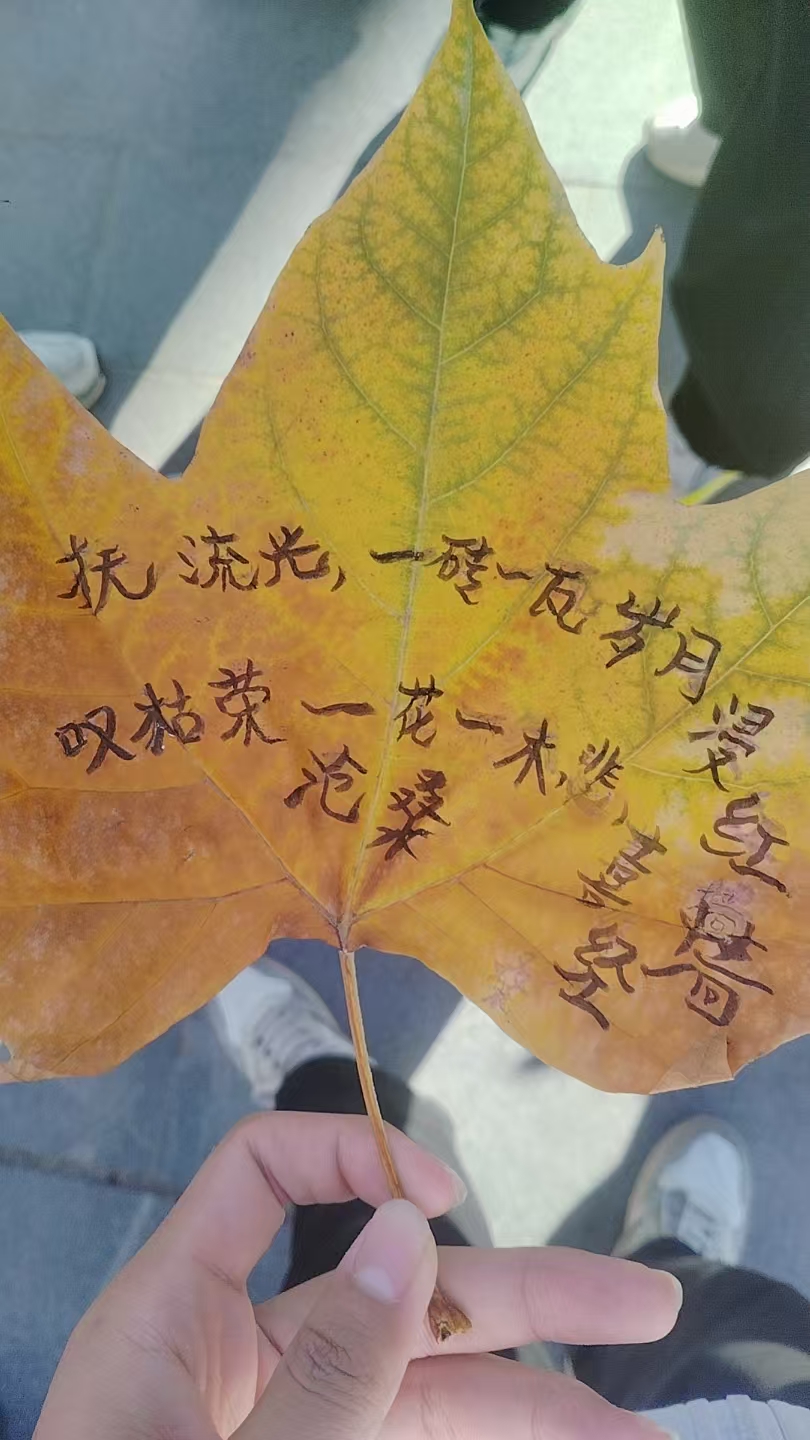 抚流光,一砖一瓦岁月浸红墙
叹枯荣一花一木,悲,喜经
沧桑